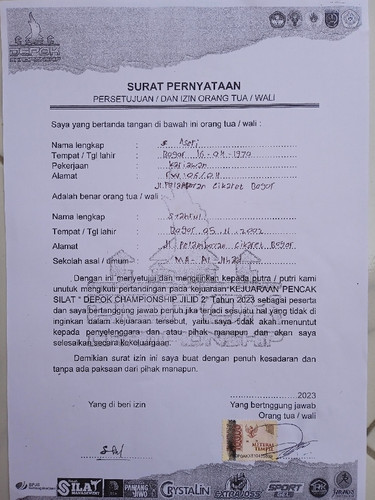 DEPOK
CHAMPIONSHIP
SURAT PERNYATAAN
PERSETUJUAN / DAN IZIN ORANG TUA / WALI
Saya yang bertanda tangan di bawah ini orang tua / wali :
Nama lengkap :
Tempat / Tgl lahir : Bogor 16-04-1970
Pekerjaan : Kariawan
Alamat :
Jl. Pelambaran Cikaret Bogor
Adalah benar orang tua / wali :
Nama lengkap :
Tempat / Tgl lahir : Bogor 05
Alamat : Jl Pelambaran Cikaret Bogor
Sekolah asal / umum : MA- Al
Dengan ini menyetujui dan mengijinkan kepada putra / putri kami
unutuk mengikuti pertandingan pada kejuaraan KEJUARAAN PENCAK
SILAT " DEPOK CHAMPIONSHIP JILID 2" Tahun 2023 sebagai peserta
dan saya bertanggung jawab penuh jika terjadi sesuatu hal yang tidak di
inginkan dalam kejuaraan tersebut, yaitu saya tidak akan menuntut
kepada penyelenggara dan atau pihak manapun dan akan saya
selesaikan secara kekeluargaan.
Demikian surat izin ini saya buat dengan penuh kesadaran dan
tanpa ada paksaan dari pihak manapun.
2023
Yang di beri izin
Yang bertnggung jawab
Orang tua / wali
METERAI
TEMPEL
BPJS
SILAT
CRYSTALIN
SPORT